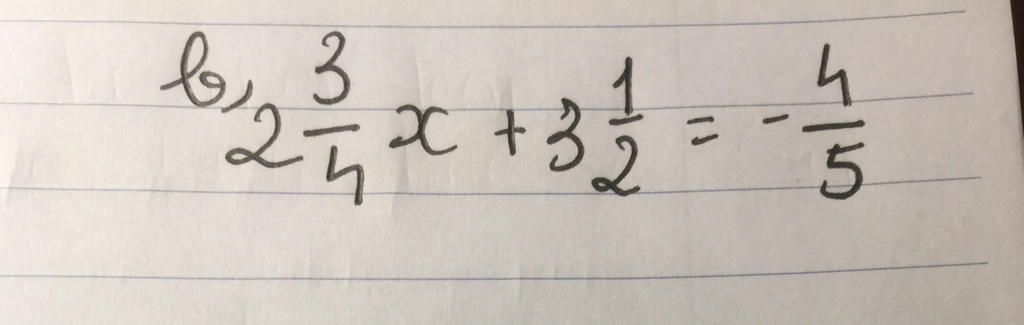 b, 2 3/4 x + 3 1/2 = - 4/5